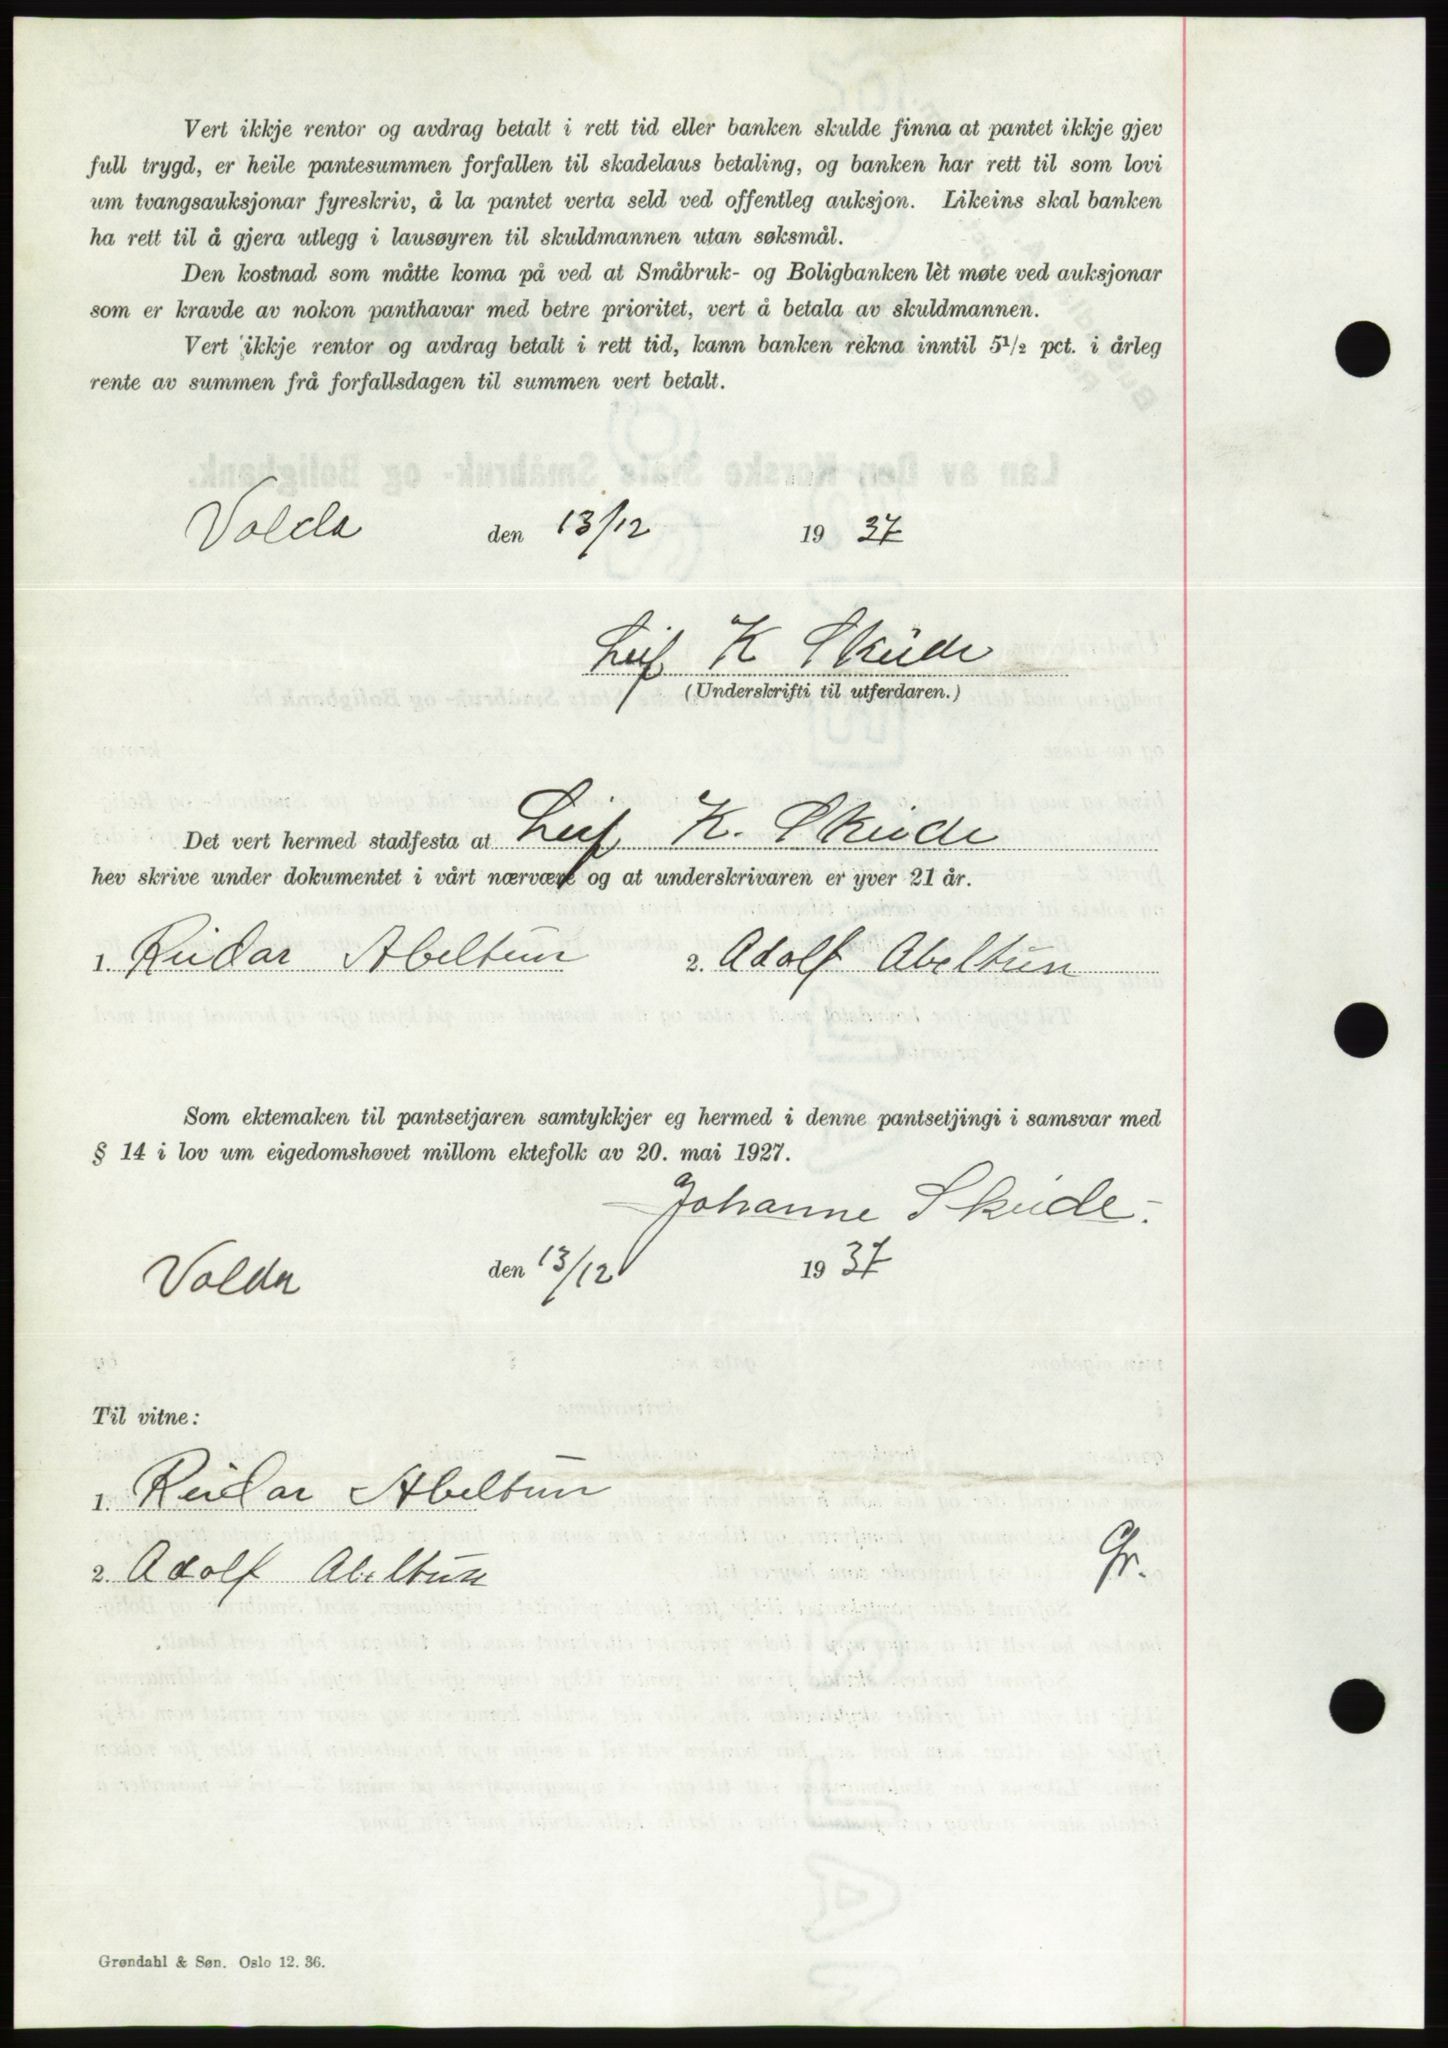 Vert ikkje rentor og avdrag betalt i rett tid eller banken skulde finna at pantet ikkje gjev
full trygd, er heile pantesummen forfallen til skadelaus betaling, og banken har rett til som lovi
um tvangsauksjonar fyreskriv, å la pantet verta seld ved offentleg auksjon. Likeins skal banken
ha rett til å gjera utlegg i lausøyren til skuldmannen utan søksmål.
Den kostnad som måtte koma på ved at Småbruk- og Boligbanken lèt møte ved auksjonar
som er kravde av nokon panthavar med betre prioritet, vert å betala av skuldmannen.
Vert ikkje rentor og avdrag betalt i rett tid, kann banken rekna inntil 5½ pct. i årleg
rente av summen frå forfallsdagen til summen vert betalt.
Volda den 13/12 19 37
Leif K Skúde
(Underskrifti til utferdaren.)
Det vert hermed stadfesta at Leif K. Skúde
hev skrive under dokumentet i vårt nærvære og at underskrivaren er yver 21 år.
1. Reidar Abeltun 2. Adolf Abeltun
Som ektemaken til pantsetjaren samtykkjer eg hermed i denne pantsetjingi i samsvar med
§ 14 i lov um eigedomshøvet millom ektefolk av 20. mai 1927.
Johanne Skúde.
Volda den 13/12 19 37
Til vitne:
1. Reidar Abeltun
2. Adolf Abeltun
Gr.
Grøndahl & Søn. Oslo 12. 36.